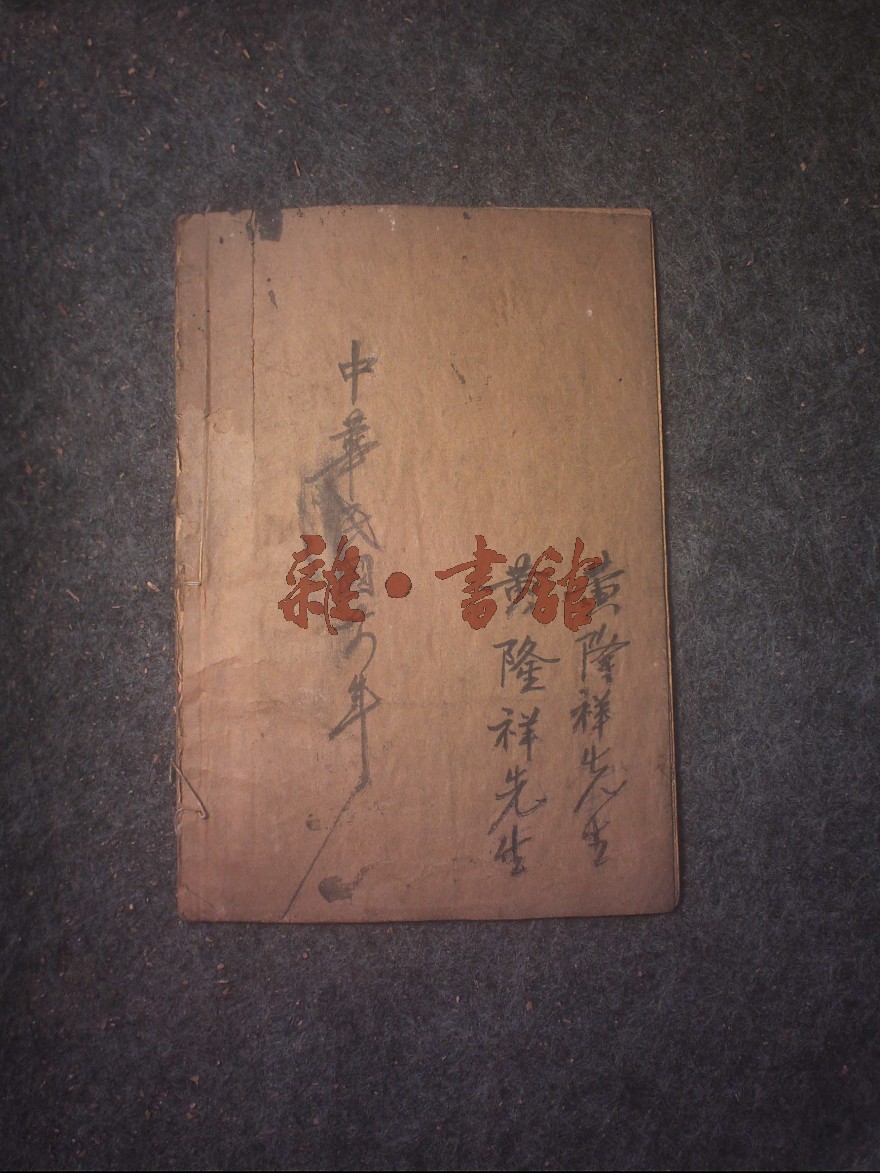 黄隆祥先生
黄隆祥先生
中華民國六年
雜·書館